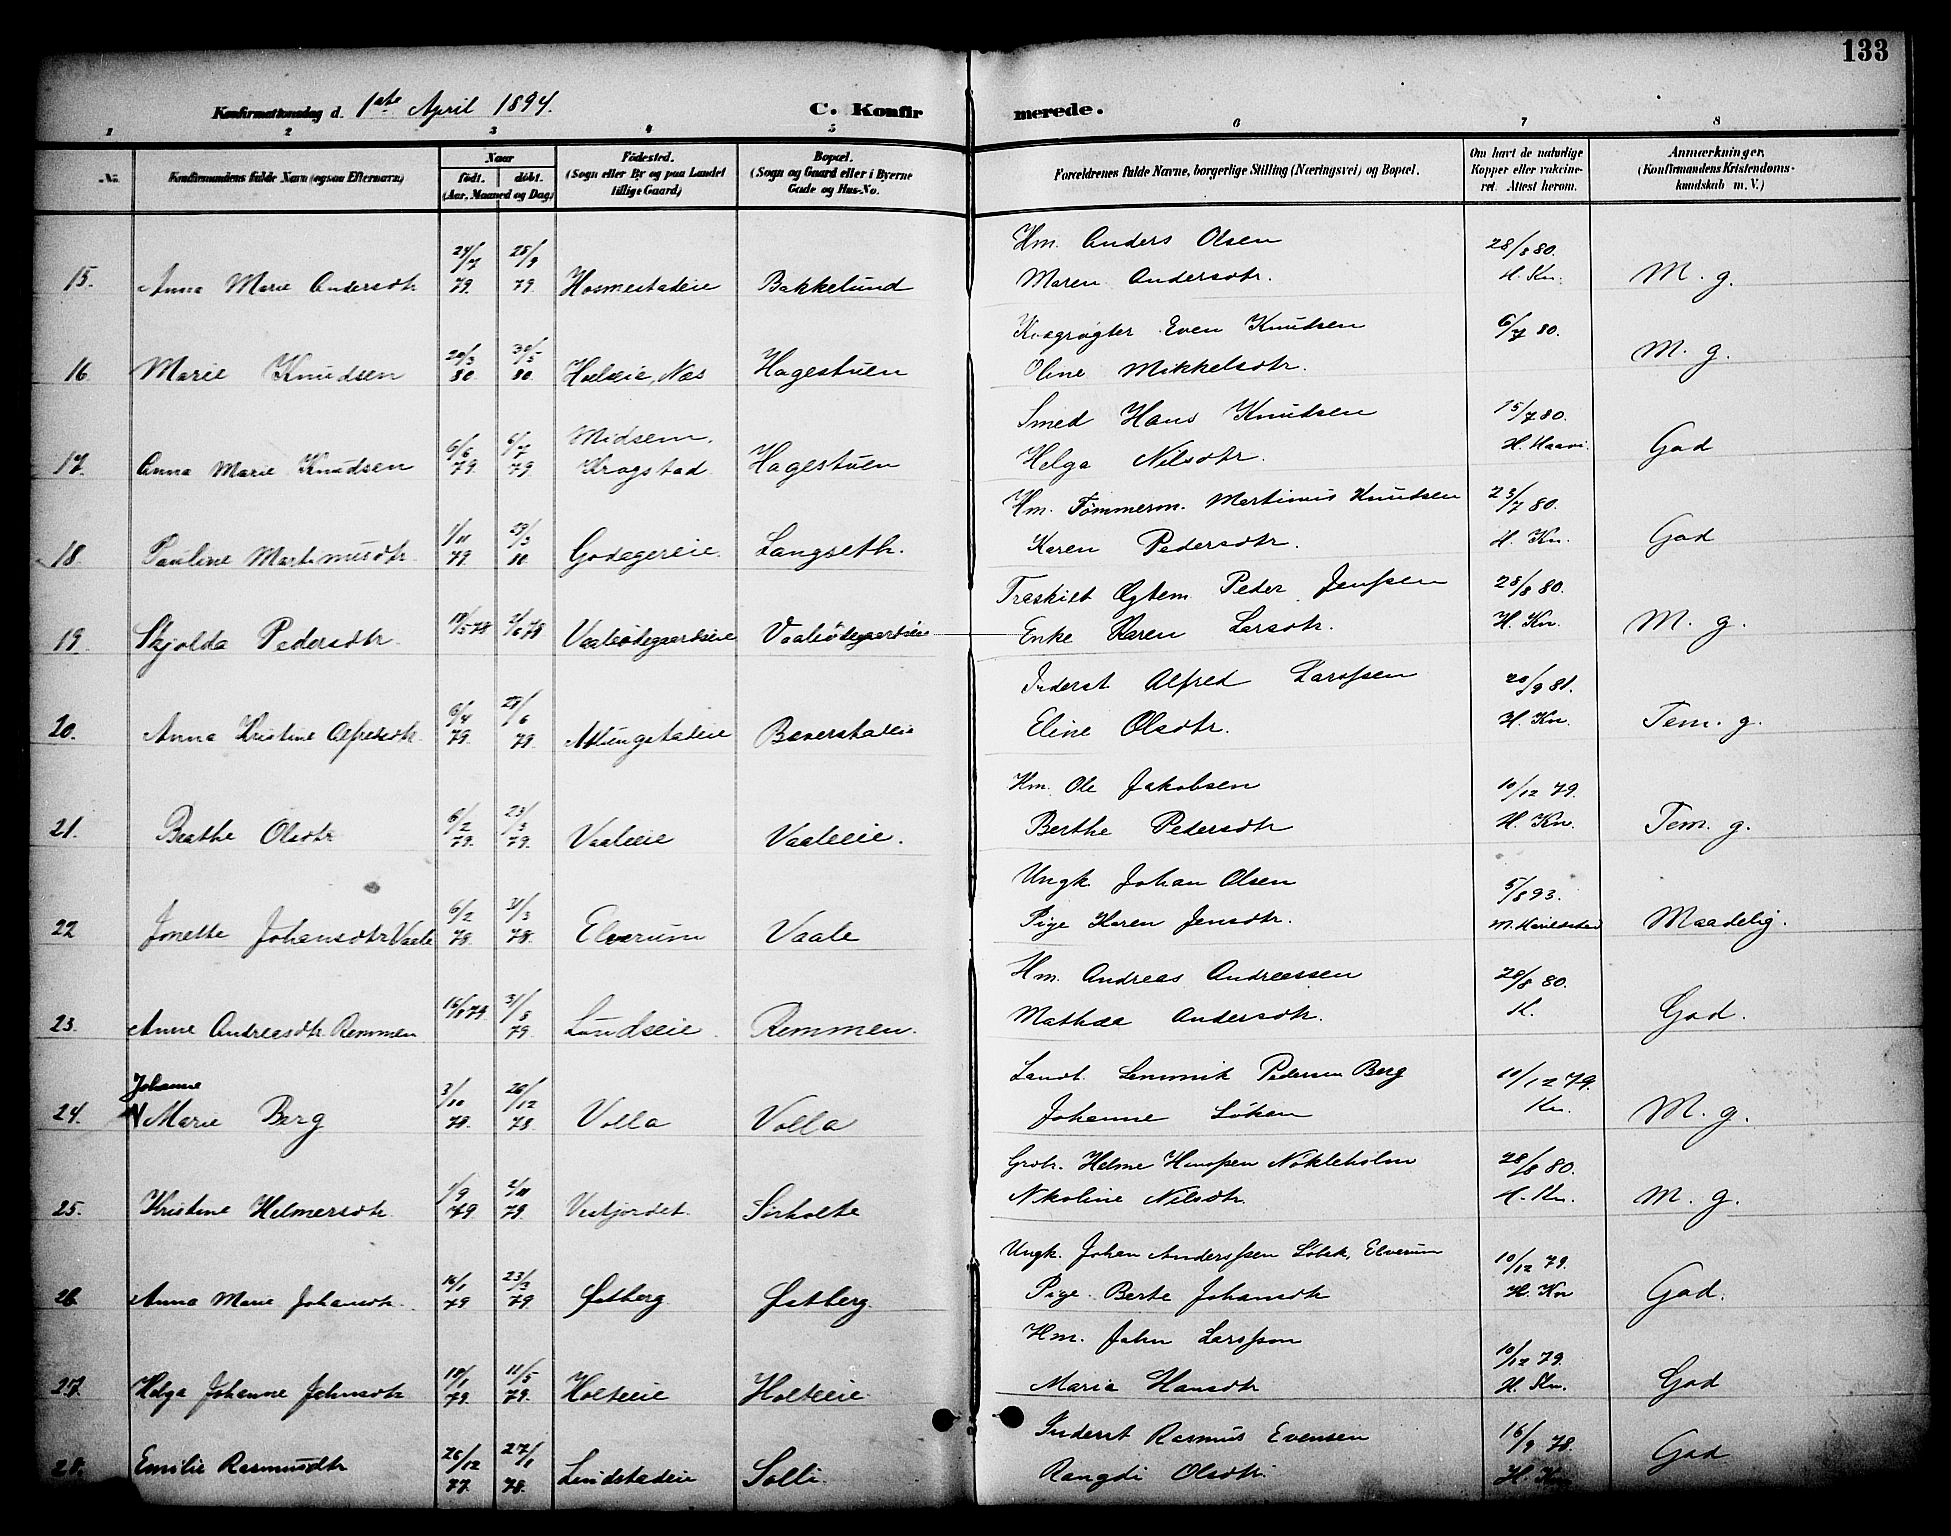 133
Konfirmationsdag d. 1ste April 1894. C. Konfirmerede.
1 2 3 4 5 6 7 8
No. Konfirmandens fulde Navn (ogsaa Efternavn.) Naar født. døbt. (Aar, Maaned og Dag.) Fødested. (Sogn eller By og paa Landet tillige Gaard.) Bopæl. (Sogn og Gaard eller i Byerne Gade og Hus-No. Forældrenes fulde Navne, borgerlige Stilling (Næringsvei) og Bopæl. Om havt de naturlige Kopper eller vakcineret. Attest herom. Anmærkninger. (Konfirmandens Kristendomskundskab m. V.)
15. Anna Marie Andersdtr 24/7 79. 25/8 79. Hosmestadeie Bakkelund Hm. Anders Olsen
Maren Andersdtr. 28/8 80. H. Kn. M. g.
16 Marie Knudsen 20/3 80. 30/5 80. Hoelseie, Næs Hagestuen Kvægrøgter Even Knudsen
Oline Mikkelsdtr. 6/7 80. M. g.
17. Anna Marie Knudsen 6/6 79. 6/7 79 Midsem. Krogstad Hagestuen Smed Hans Knudsen
Helga Nilsdtr. 15/7 80. H. Haavi. God
18. Pauline Martinusdtr. 1/11 79. 29/3 80. Godagereie. Langseth. Hm. Tømmerm. Martinius Knudsen
Karen Pedersdtr. 23/7 80. H. Kn. God
19. Skjolda Pedersdtr. 19/5 78 2/6 78 Vaaleødegaardseie Vaaleødegaardseie Fraskilt Ægtem. Peder Jenssen
Enke Karen Larsdtr. 28/8 80. H. Kn. M. g.
20. Anna Kristine Alfredsdtr. 9/4 79. 22/6 79. Attungstadeie Beverstadeie Inderst Alfred Larssen
Eline Olsdtr. 20/9 81. H. Kn. Tem. g.
21. Beathe Olsdtr 6/2 79. 23/3 79. Vaaleeie Vaaleeie. Hm. Ole Jakobsen
Berthe Pedersdtr 10/12 79. H. Kn. Tem. g.
22 Jonette Johansdtr Vaale 6/2 78. 31/3 78. Elverum Vaale Ungk. Johan Olsen
Pige Karen Jensdtr. 5/8 93. Maadelig.
23. Anne Andreasdtr Remmen 16/8 79. 31/8 79. Lundseie Remmen. Hm. Andreas Andreassen
Mathea Andersdtr. 28/8 80. K. God.
24. Johanne Marie Berg 3/10 78. 26/12 78. Volla Volla Landh. Lennik Pedersen Berg
Johanne Løken 10/12 79. Kn. M. g.
25. Kristine Helmersdtr 1/9 79 2/11 79. Vestfjordet. Sørholte Grdbr. Helme Hanssen Nokleholm
Nikoline Nilsdtr. 28/8 80. H. Kn. M. g.
26. Anna Marie Johansdtr. 16/1 79 23/3 79 Østberg Østberg. Ungk. Johan Anderssen Løbek, Elverum
Pige Berte Johansdtr 10/12 79. H. Kn God.
27. Helga Johanne Johnsdtr 10/1 79. 11/5 79. Holteeie Holteeie Hm. John Larsson
Maria Hansdtr 10/12 79. H. Kn. God
28. Emilie Rasmusdtr 26/12 77. 27/1 78. Lundstadeie Solli Inderst Rasmus Evensen
Rangdi Olsdtr. 16/9 78. H. Kn God